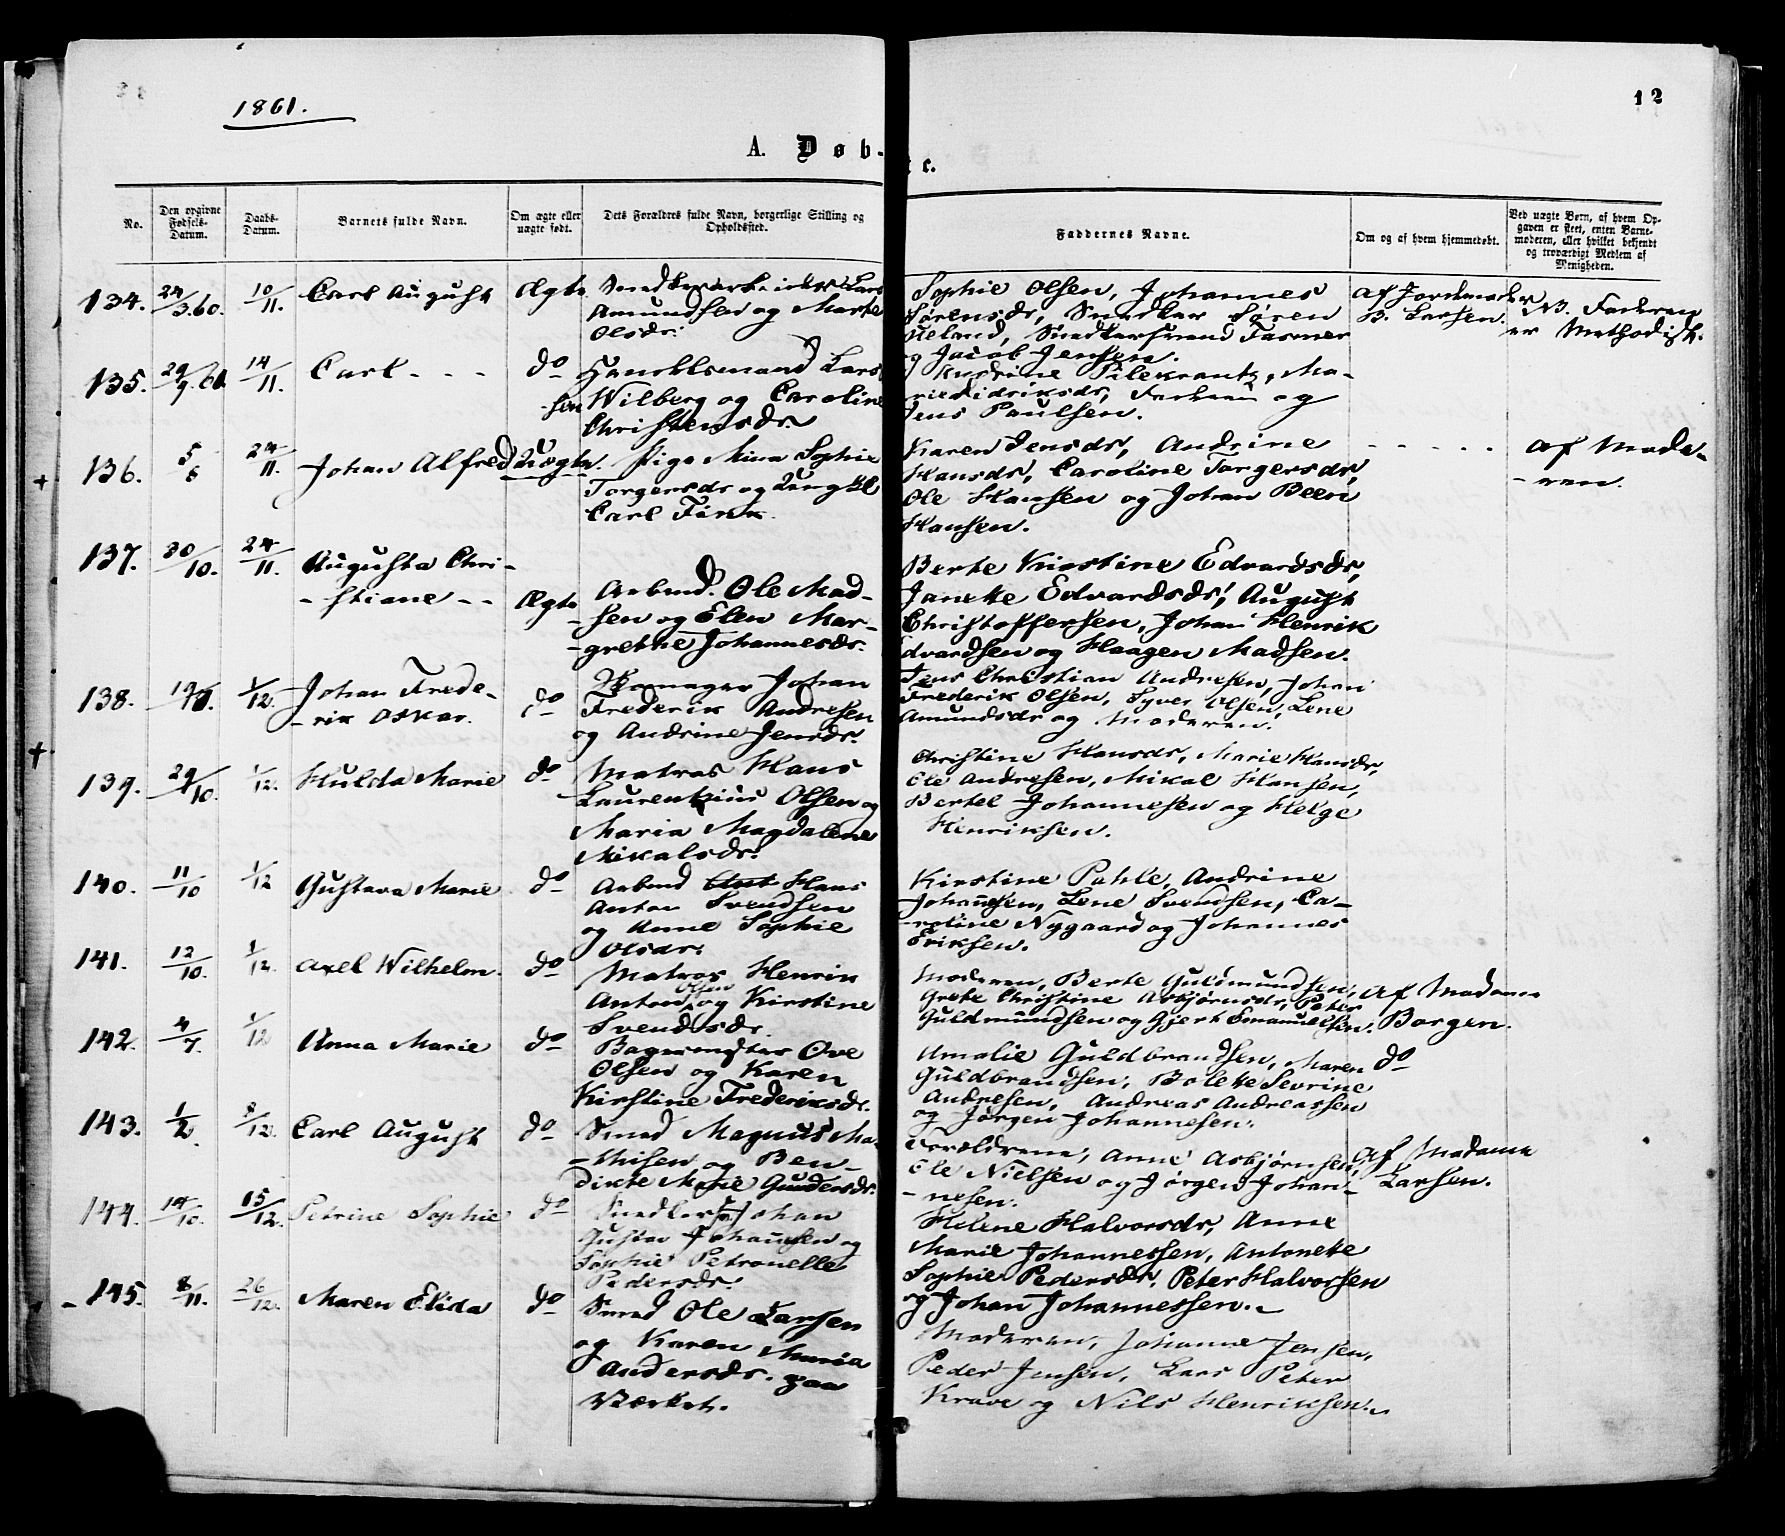 1861.
12
A. Døb-
te.
No.
Den opgivne Fødsels-Datum.
Daabs-Datum.
Barnets fulde Navn.
Om ægte eller uægte født.
Dets Forældres fulde Navn, borgerlige Stilling og Opholdssted.
Faddernes Navne.
Om og af hvem hjemmedøbt.
Ved uægte Børn, af hvem Opgaven er skeet, enten Barnemoderen, eller hvilket bekjendt og troværdigt Medlem af Menigheden.
134. 24/3 60. 10/11. Carl August Ægte
Amundsen og Marte
Olsdr:
Sophie Olsen, Johannes
Sørensdr, Snedker Søren
og Jacob Jensen.
Af Jordmoder
B. Larsen.
NB. Faderen
er Methodist.
135. 29/9 61 14/11. Carl - - - do
Lars
Wilberg og Caroline
Christensdr.
Jens Paulsen.
136. 5/8 24/11. Johan Alfred Uægte.
Pige Mina Sophie
Torgersdr og Ungkl
Carl Fink.
Karen Jensdr, Andrine
Hansdr, Caroline Torgersdr,
Ole Hansen og Johan Been
Hansen.
- - - - -
af Mode-
-ren.
137. 30/10. 24/11. Augusta Chri-
-stiane - - Ægte
Arbmd. Ole Mad-
-sen og Elen Mar-
-grethe Johannesdr.
Berte Kirstine Edvardsdr,
Janeke Edvardsdr, August
Christoffersen, Johan Henrik
Edvardsen og Haagen Madsen.
138. 1/12. Johan Frede-
-rik Oskar. do
Johan
Frederik Andresen
og Andrine Jensdr.
Jens Christian Andresen, Johan
Frederik Olsen, Syver Olsen, Lene
Amundsdr og Moderen.
139. 29/10. 1/12. Hulda Marie do
Matros Hans
Laurentzius Olsen og
Maria Magdalene
Mikalsdr.
Christine Hansdr, Marie Hansdr,
Ole Andresen, Mikal Hansen,
Bertel Johannesen og Helge
Henriksen.
140. 11/10 1/12 Gustava Marie do
Arbmd Hans
Anton Svendsen
og Anne Sophie
Olsdr.
Kirstine Pahle, Andrine
Johannesen, Lene Svendsen, Ca-
-roline Nygaard og Johannes
Eriksen.
141. 12/10. 1/12. Axel Wilhelm. do
Matros Henrik
Anton Olsen og Kirstine
Svendsdr.
Moderen, Berte Guldmundsen,
Grete Christine Asbjørnsdr, Peter
Guldmundsen og Gjert Emanuelsen.
Af Madame
Borgen.
142. 4/7. 1/12 Anna Marie do
Bagermester Ove
Olsen og Karen
Kirstine Frederiksdr.
Amalie Guldbrandsen, Maren
Guldbrandsen, Bolette Sevrine
Andresen, Andreas Andreassen
og Jørgen Johannesen.
do
143. 1/2. 8/12. Carl August do
Smed Magnus Ma-
-thisen og Ben-
dikte Marie Gundersdr.
Forældrene, Anne Asbjørnsen,
Ole Nielsen og Jørgen Johan-
-nesen.
Af Madame
Larsen.
144. 14/10. 15/12. Petrine Sophie do
Snedkersv. Johan
Gustav Johannsen og
Sophie Petronelle
Pedersdr.
Helene Halvorsdr, Anne
Marie Johannessen, Antonette
Sophie Pedersdr, Peter Halvorsen
og Johan Johannessen.
- 145. 8/11. 26/12. Maren Elida do
Smed Ole Larsen
og Karen Maria
Andersdr. paa
Værket.
Moderen, Johanne Jensen,
Peder Jensen, Lars Peter
Krave og Nils Henriksen.